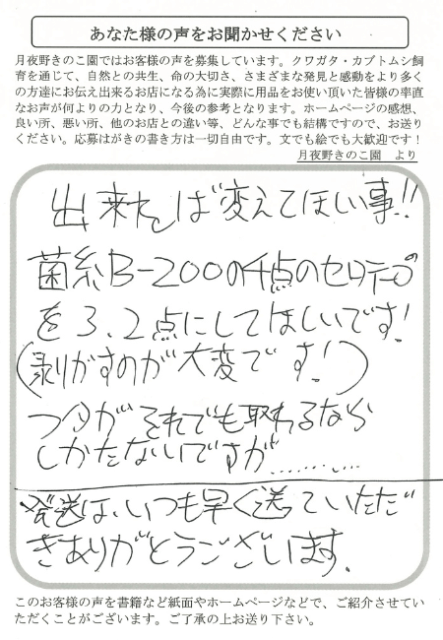 あなた様の声をお聞かせください
月夜野きのこ園ではお客様の声を募集しています。クワガタ・カブトムシ飼
育を通じて、自然との共生、命の大切さ、さまざまな発見と感動をより多く
の方達にお伝え出来るお店になる為に実際に用品をお使い頂いた皆様の率直
なお声が何よりの力となり、今後の参考となります。ホームページの感想、
良い所、悪い所、他のお店との違い等、どんな事でも結構ですので、お送り
ください。応募はがきの書き方は一切自由です。文でも絵でも大歓迎です！
月夜野きのこ園　より
出来れば変えてほしい事!!
菌糸B-200の4点のセロテープ
を3、2点にしてほしいです!
(剥がすのが大変です!)
つ分がそれでも取れるなら
しかたないですが.........
発送は、いつも早く送っていただ
きありがとうございます.
このお客様の声を書籍など紙面やホームページなどで、ご紹介させてい
ただくことがございます。ご了承の上お送り下さい。